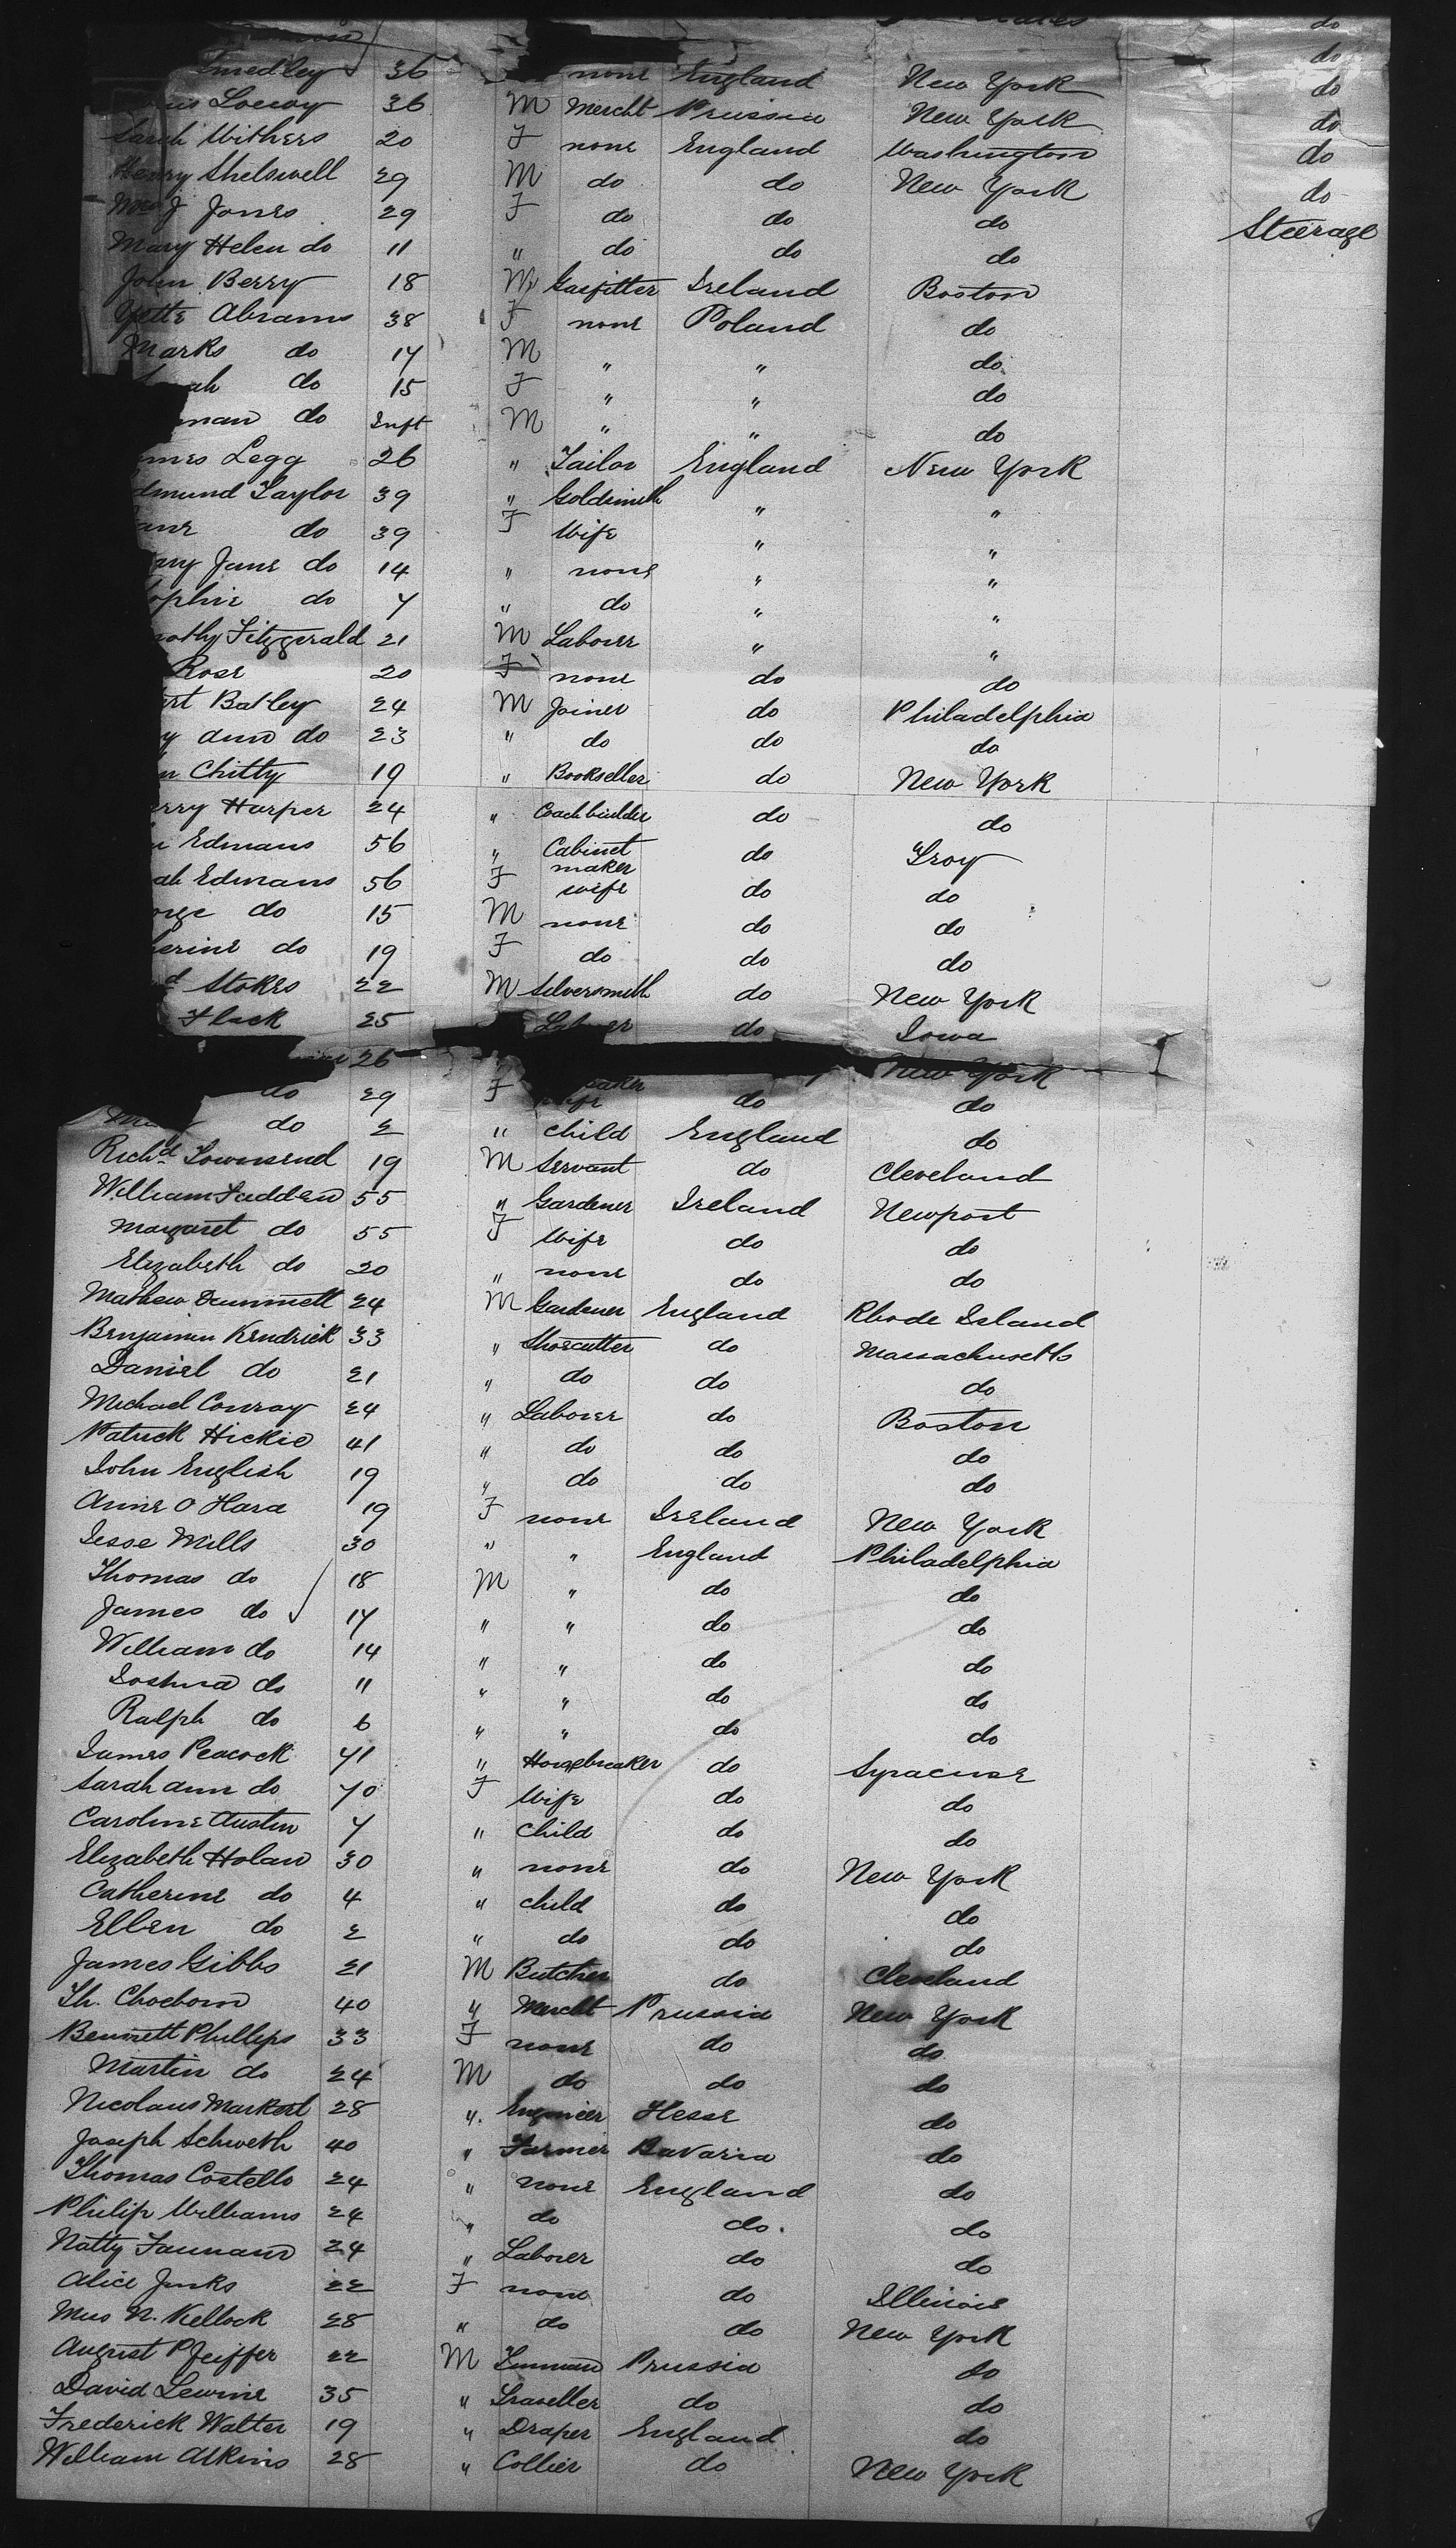 do
Smedley 36 none England New York do
Loewy 36 M Mercht Prussia New York do
Sarah Withers 20 F none England Washington do
Henry Shelswell 29 M do do New York do
Mrs J Jones 29 F do do do do
Mary Helen do 11 " do do do Steerage
John Berry 18 M Gasfitter Ireland Boston
Yette Abrams 38 F none Poland do
Marks do 17 M " " do
ah do 15 F " " do
man do Inft M " " do
mes Legg 26 " Tailor England New York
dmund Taylor 39 " Goldsmith " "
ane do 39 F Wife " "
ary Jane do 14 " none " "
ophie do 7 " do " "
mothy Fitzgerald 21 M Laborer " "
Rose 20 F none do do
ert Batley 24 M Joiner do Philadelphia
y ann do 23 " do do do
n Chitty 19 " Bookseller do New York
erry Harper 24 " Coachbuilder do do
n Edmans 56 " Cabinet maker do Troy
ah Edmans 56 F wife do do
orge do 15 M none do do
herine do 19 F do do do
d Stokes 22 M Silversmith do New York
Flack 25 Laborer do Iowa
26 New York
do 29 F wife do do
do 2 " child England do
Richd Townsend 19 M Servant do Cleveland
William Fadden 55 " Gardener Ireland Newport
Margaret do 55 F Wife do do
Elizabeth do 20 " none do do
Mathew Dummett 24 M Gardener England Rhode Island
Benjamin Kendrick 33 " Shoecutter do Massachusetts
Daniel do 21 " do do do
Michael Conray 24 " Laborer do Boston
Patrick Hickie 41 " do do do
John English 19 " do do do
Anne O Hara 19 F none Ireland New York
Jesse Mills 30 " " England Philadelphia
Thomas do 18 M " do do
James do 17 " " do do
William do 14 " " do do
Joshua do 11 " " do do
Ralph do 6 " " do do
James Peacock 71 " Horsebreaker do Syracuse
Sarah ann do 70 F Wife do do
Caroline Austin 7 " child do do
Elizabeth Holan 30 " none do New York
Catherine do 4 " child do do
Ellen do 2 " do do do
James Gibbs 21 M Butcher do Cleveland
Th. Choeborn 40 " Mercht Prussia New York
Bennett Phillips 33 F none do do
Martin do 24 M do do do
Nicolaus Markert 28 " Engineer Hesse do
Joseph Schweth 40 " Farmer Bavaria do
Thomas Costello 24 " none England do
Philip Williams 24 " do do do
Natty Faunaw 24 " Laborer do do
Alice Jenks 22 F none do Illinois
Mrs N. Kellock 28 " do do New York
August Pfeiffer 22 M Prussia do
David Lewine 35 " Traveller do do
Frederick Walter 19 " Draper England do
William Atkins 28 " Collier do New York